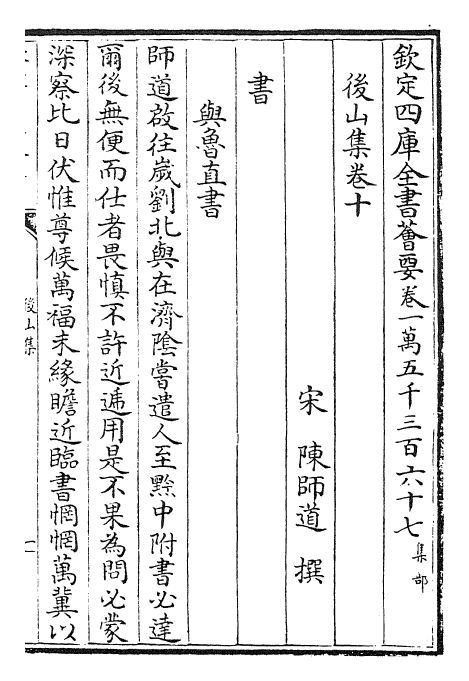 欽定四庫全書薈要卷一萬五千三百六十七集部
後山集卷十
宋 陳師道 撰
書
與魯直書
師道啟往歲劉北輿在濟隂嘗遣人至黔中附書必達
爾後無便而仕者畏慎不許近逓用是不果為問必蒙
深察比日伏惟尊候萬福未緣瞻近臨書惘惘萬冀以
後山集
一